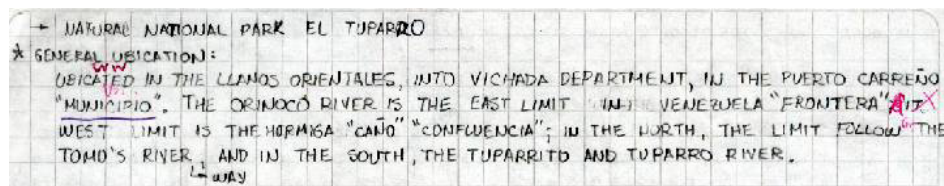 → NATURAL NATIONAL PARK EL TUPARRO
* GENERAL UBICATION:
UBICATED IN THE LLANOS ORIENTALES, INTO VICHADA DEPARTMENT, IN THE PUERTO CARREÑO
"MUNICIPIO". THE ORINOCO RIVER IS THE EAST LIMIT IN VENEZUELA "FRONTERA" IT
WEST LIMIT IS THE HORMIGA "CAÑO" "CONFLUENCIA"; IN THE NORTH, THE LIMIT FOLLOW THE
TOMO'S RIVER, AND IN THE SOUTH, THE TUPARRITO AND TUPARRO RIVER.
WAY